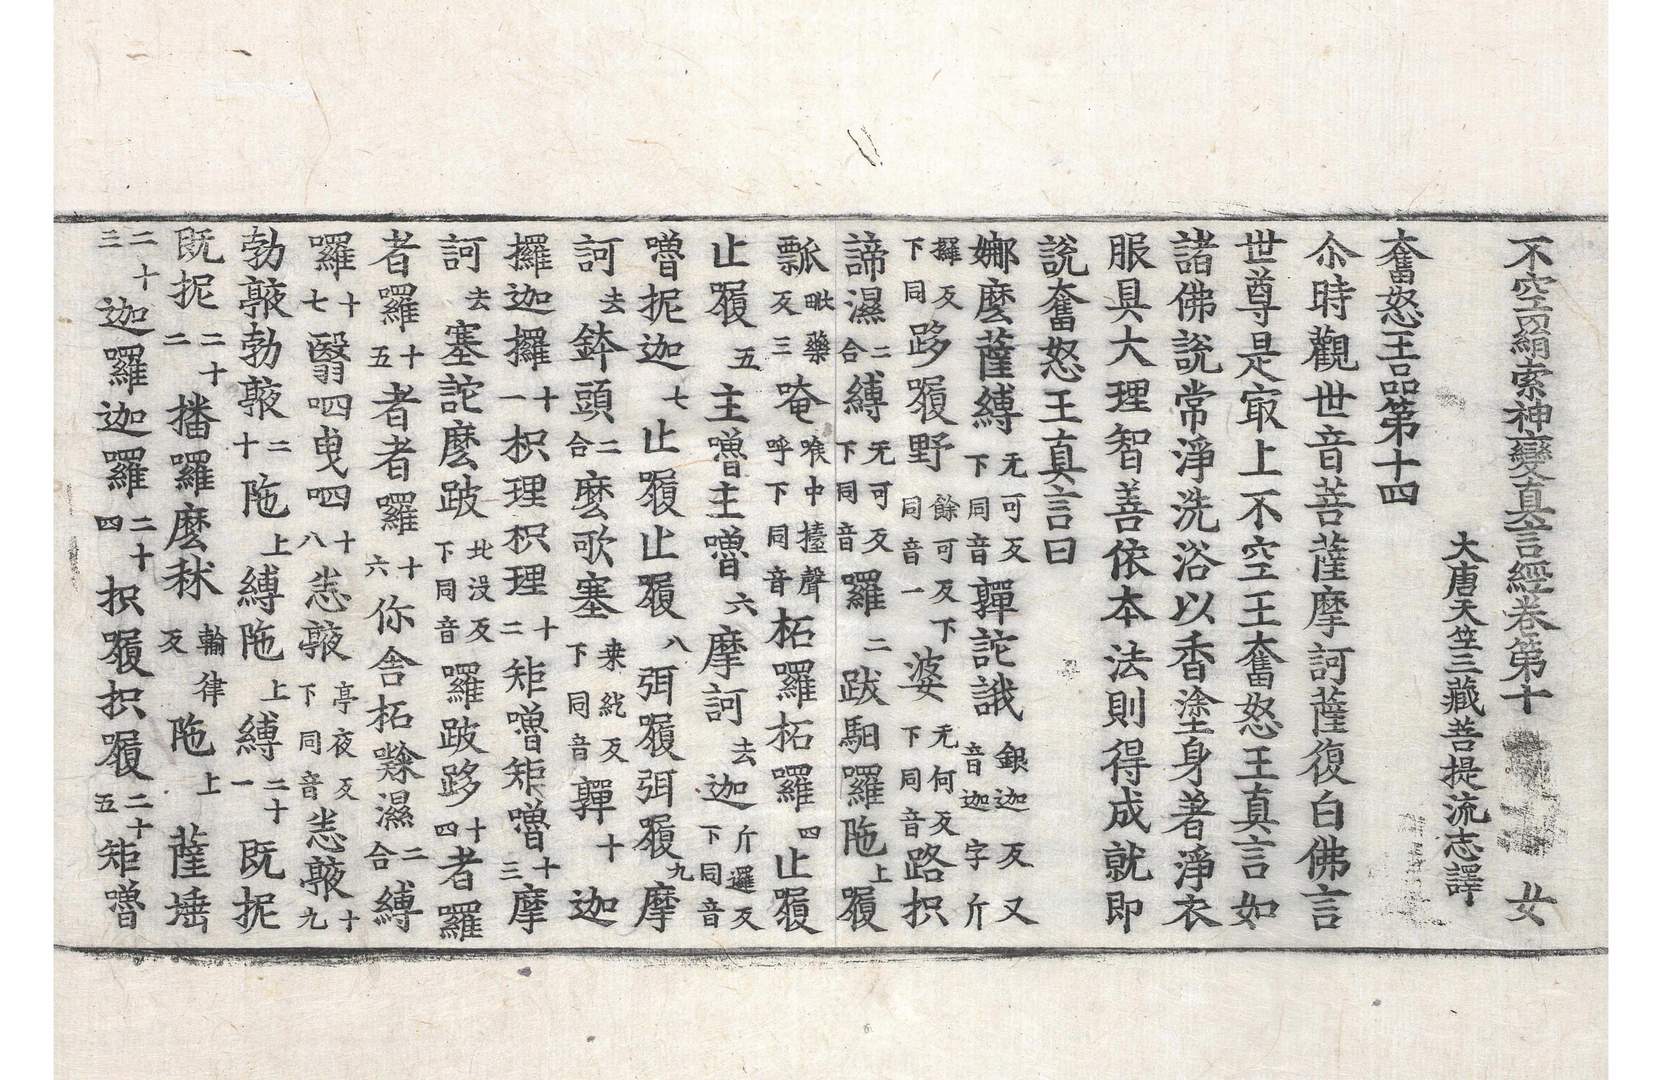 不空羂索神變真言經卷第十 女
大唐天竺三藏菩提流志譯
奮怒王品第十四
尒時觀世音菩薩摩訶薩復白佛言
世尊是㝡上不空王奮怒王真言如
諸佛說常淨洗浴以香塗身著淨衣
服具大理智善依本法則得成就即
說奮怒王真言曰
娜麼薩縛无可反下同音嚲詑誐銀迦反又音迦字斤
攞反下同路𡰱野餘可反下同音一婆无何反下同音路抧
諦濕二合縛无可反下同音囉二跋馹囉陁上𡰱
瓢毗藥反三唵喉中擡聲呼下同音柘囉柘囉四止𡰱
止𡰱五主嚕主嚕六摩訶去迦斤邏反下同音
嚕抳迦七止𡰱止𡰱八弭𡰱弭𡰱九摩
訶去鉢頭二合麼歌塞桒紇反下同音嚲十迦
攞迦攞十一枳理枳理十二矩嚕矩嚕十三摩
訶去塞詑麼跛北沒反下同音囉跛跢十四者羅
者囉十五者者囉十六你舍柘𡃤濕二合縛
囉十七翳呬曳呬十八㳬𭉨亭夜反下同音㳬𭉨十九
勃𭉨勃𭉨二十陁上縛陁上縛二十一既抳
既抳二十二播囉麼秫輸律反陁上薩埵
二十三迦囉迦囉二十四抧𡰱抧𡰱二十五矩嚕